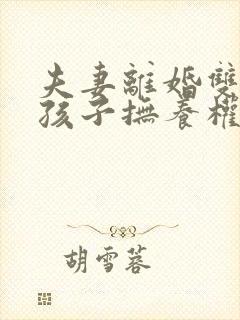 夫妻離婚雙
孩子撫養權
胡雪蓉